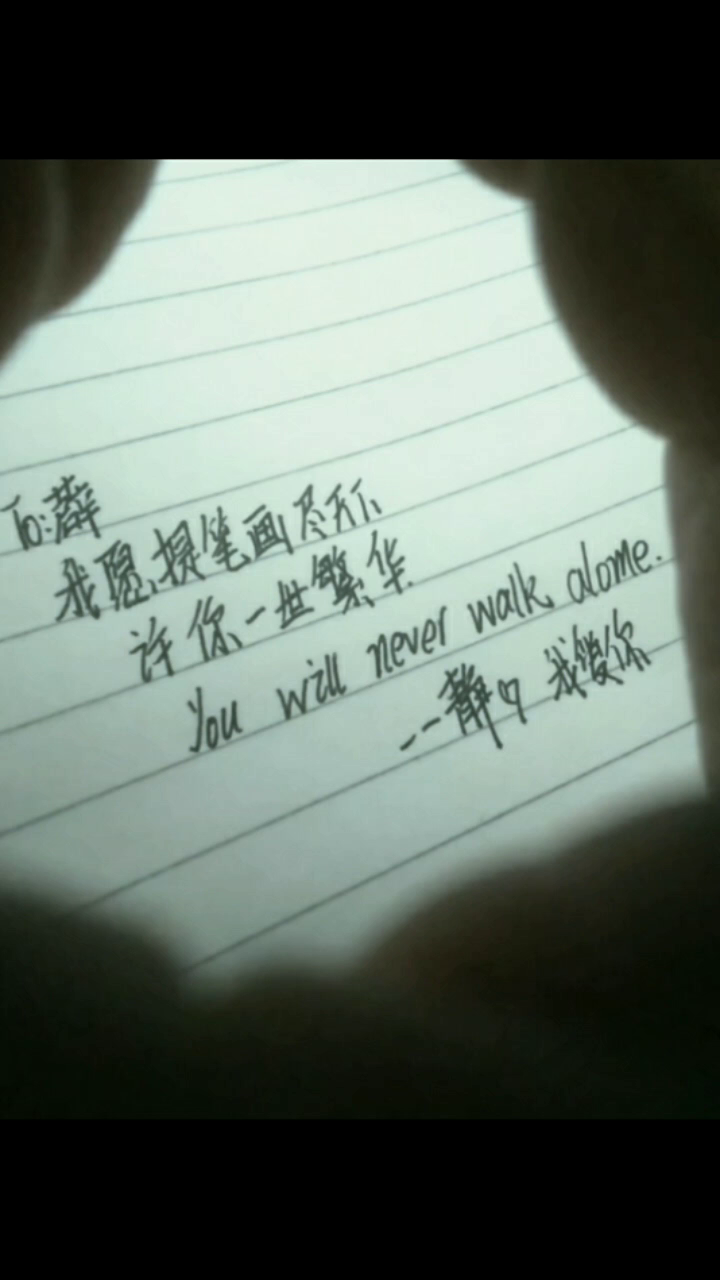 To:薛
我愿提笔画尽天下
许你一世繁华
You will never walk alone.
——静♡ 我愛你